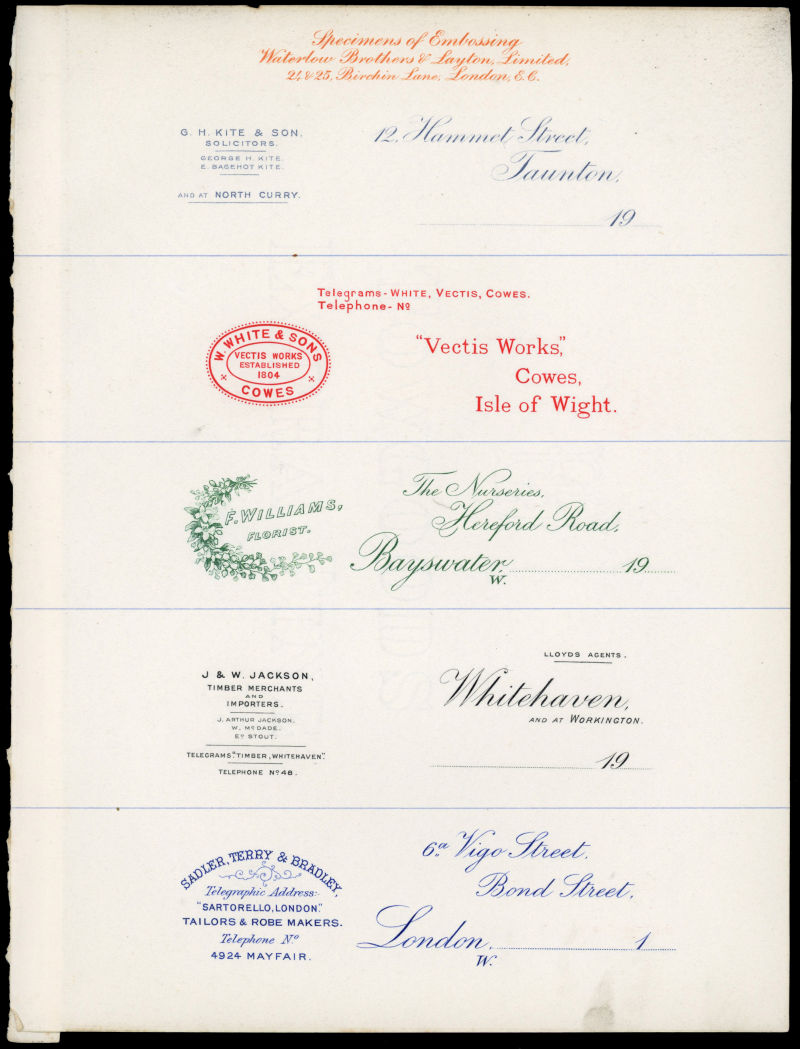 Specimens of Embossing
Waterlow Brothers & Layton, Limited,
24 & 25, Birchin Lane, London, E.C.
G. H. KITE & SON,
SOLICITORS.
GEORGE H. KITE.
E. BAGEHOT KITE.
AND AT NORTH CURRY.
12, Hammet Street,
Taunton,
19
Telegrams - WHITE, VECTIS, COWES.
Telephone - Nº
W. WHITE & SONS
VECTIS WORKS
ESTABLISHED
1804
COWES
“Vectis Works,”
Cowes,
Isle of Wight.
F. WILLIAMS,
FLORIST.
The Nurseries,
Hereford Road,
Bayswater, 19
W.
J & W. JACKSON,
TIMBER MERCHANTS
AND
IMPORTERS.
J. ARTHUR JACKSON.
W. McDADE.
Ed STOUT.
TELEGRAMS: “TIMBER, WHITEHAVEN”.
TELEPHONE Nº 48.
LLOYDS AGENTS.
Whitehaven,
AND AT WORKINGTON.
19
SADLER, TERRY & BRADLEY,
Telegraphic Address:-
“SARTORELLO, LONDON.”
TAILORS & ROBE MAKERS.
Telephone Nº
4924 MAYFAIR.
6a, Vigo Street,
Bond Street,
London, 1
W.